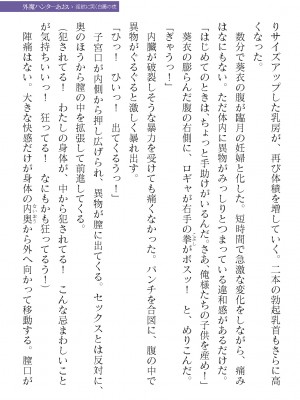 外魔ハンターあおい
りサイズアップした乳房が、再び体積を増していく。二本の勃起乳首もさらに高
くなった。
　数分で葵衣の腹が臨月の妊婦と化した。短時間で急激な変化をしながら、痛み
はなにもない。ただ体内に異物がみっしりとつまっている違和感があるだけだ。
「はじめてのときは、ちょっと手助けがいるんだ。さあ、俺様たちの子供を産め！」
　葵衣の膨らんだ腹の右側に、ロギャが右手の拳がボスッ！　と、めりこんだ。
「ぎゃうっ！」
　内臓が破裂しそうな暴力を受けても痛くなかった。パンチを合図に、腹の中で
異物がぐるぐると激しく暴れ出す。
「ひっ！　ひいっ！　出てくるうっ！」
　子宮口が内側から押し広げられ、異物が膣に出てくる。セックスとは反対に、
奥のほうから膣の中を拡張して前進してくる。
「犯されてる！　わたしの身体が、中から犯されてる！　こんな忌まわしいこと
が気持ちいいっ！　狂ってる！　なにもかも狂ってるう！」
　陣痛はない。大きな快感だけが身体の内奥から外へ向かって移動する。膣口が